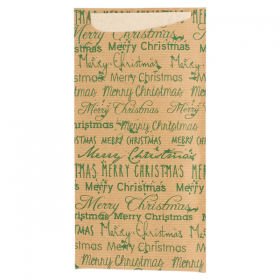 Merry Christmas
Merry Christmas
Merry Christmas
Merry Christmas Merry Christmas
Christmas Merry Christmas
Merry Christmas Merry Christmas
Merry Christmas
Christmas Merry Christmas
MERRY CHRISTMAS MERRY
Merry Christmas
MAS MERRY CHRISTMAS
Merry Christmas
Merry Christmas
Merry Christmas
Merry Christmas
Christmas Merry Christmas
Merry Christmas
Merry Christmas
Christmas Merry Christmas
MERRY CHRISTMAS